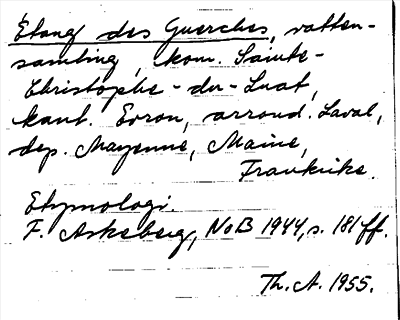 Etang des Guerches, vatten-
samling, kom. Sainte-
Christophe-du-Luat,
kant. Evron, arrond. Laval,
dep. Mayenne, Maine,
Frankrike.
Etymologi.
F. Askeberg, NoB 1944, s. 181 ff.
Th. A. 1955.